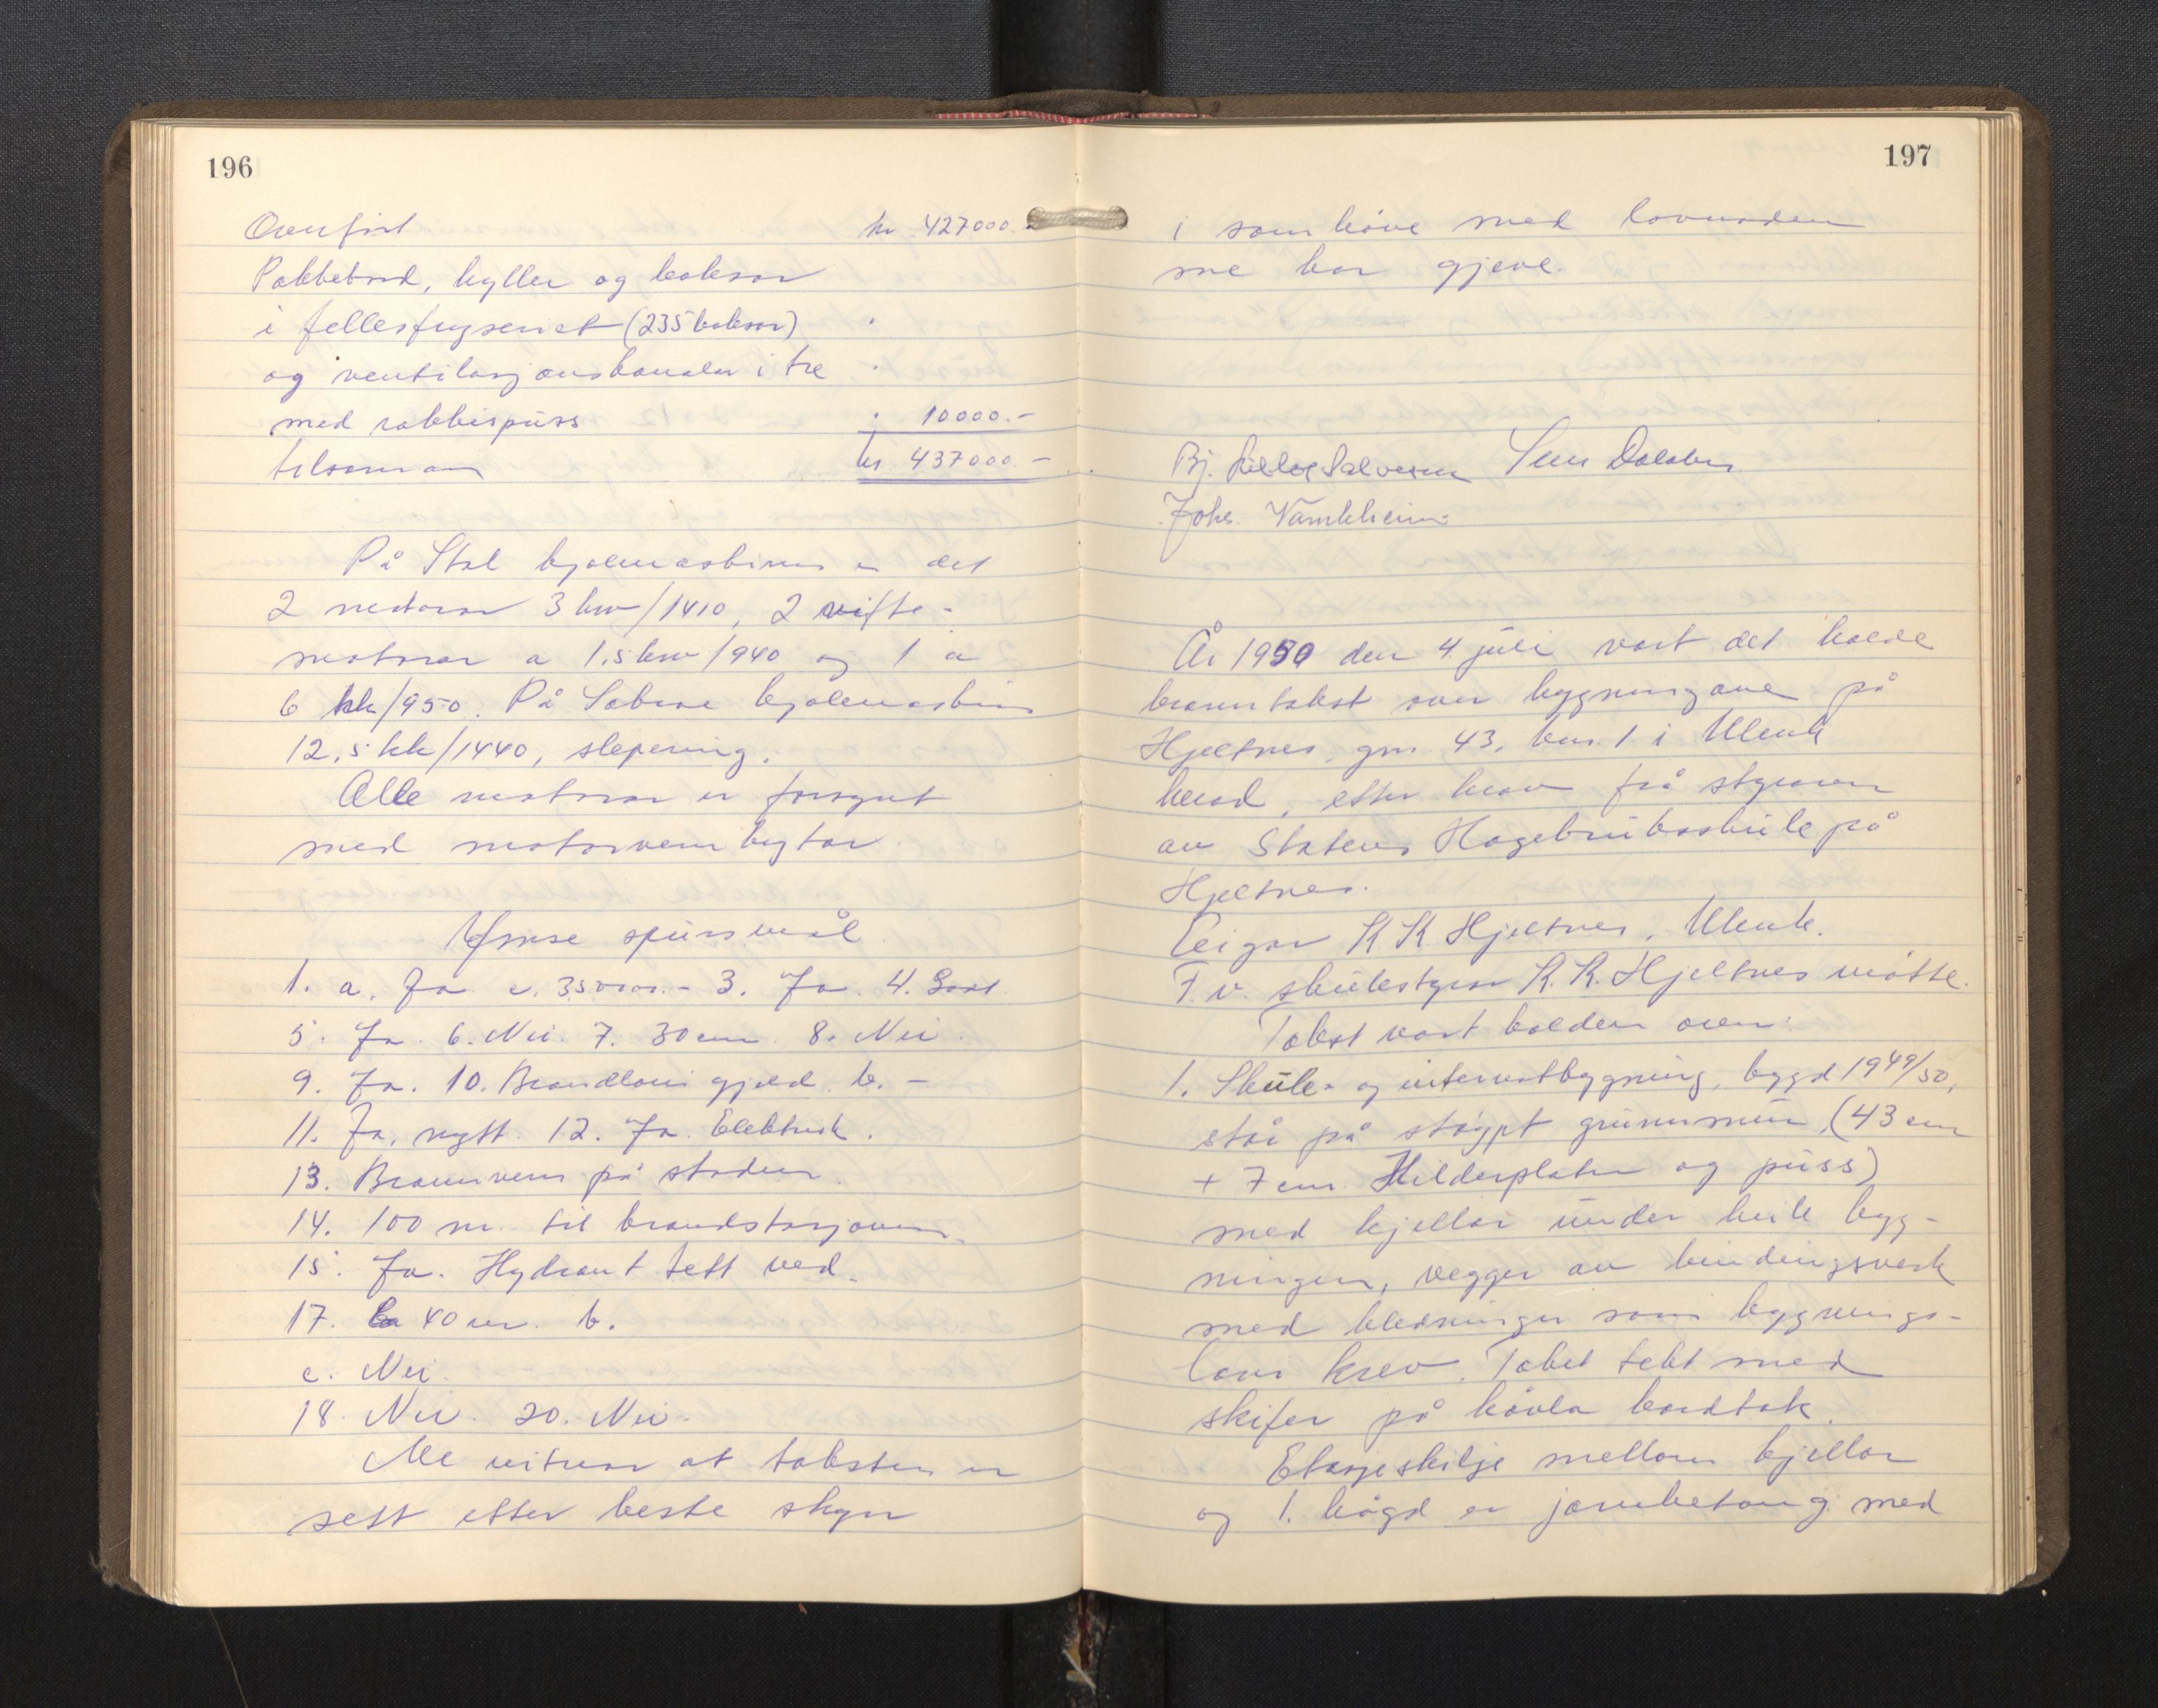 196
Overført kr. 427000.-
Pakkebord, hyller og boksar
i fellesfryseriet (235 boksar) "
og ventilasjonskanalar i tre "
med rabbispuss " 10000.-
tilsaman kr. 437000.-
På Stal kjølemaskiner er det
2 motorar 3 kw/1410, 2 vifte-
motorar a 1.5 kw/940 og 1 a
6 hk/950. På Sabroe kjølemaskin
12,5 hk/1440, slepering.
Alle motorar er forsynt
med motorvernbrytar.
Ymse spursmål
1. a. Ja c. 35000.- 3. Ja. 4.
5. Ja. 6. Nei. 7. 30 cm. 8. Nei.
9. Ja. 10. gjeld. b. -
11. Ja, nytt. 12. Ja. Elektrisk.
13. Brannvern på staden.
14. 100 m. til brandstasjonen.
15. Ja. Hydrant tett ved.
17. Ca 40 m. b.
c. Nei.
18. Nei. 20. Nei.
Me vitnar at taksten er
sett etter beste skyn
197
i samhøve med lovnaden
me har gjeve.
Bj. Salvesen
Johs.
År 1950 den 4 juli vart det halde
branntakst over bygningane på
Hjeltnes, gnr. 43, bnr. 1 i Ulvik
herad, etter krav frå styraren
av Statens Hagebruksskule på
Hjeltnes.
Eigar K K Hjeltnes, Ulvik.
F. v. skulestyrar K. K. Hjeltnes møtte.
Takst vart halden over:
1. Skule- og internatbygning, bygd 1949/50,
står på støypt grunnmur, (43 cm
+ 7 cm. Hilderplater og puss)
med kjellar under heile byg-
ningen, vegger av bindingsverk
med kledninger som bygnings-
lova krev. Taket tekt med
skifer på høvla bordtak.
Etasjeskilje mellom kjellar
og 1. høgd er jarnbetong med